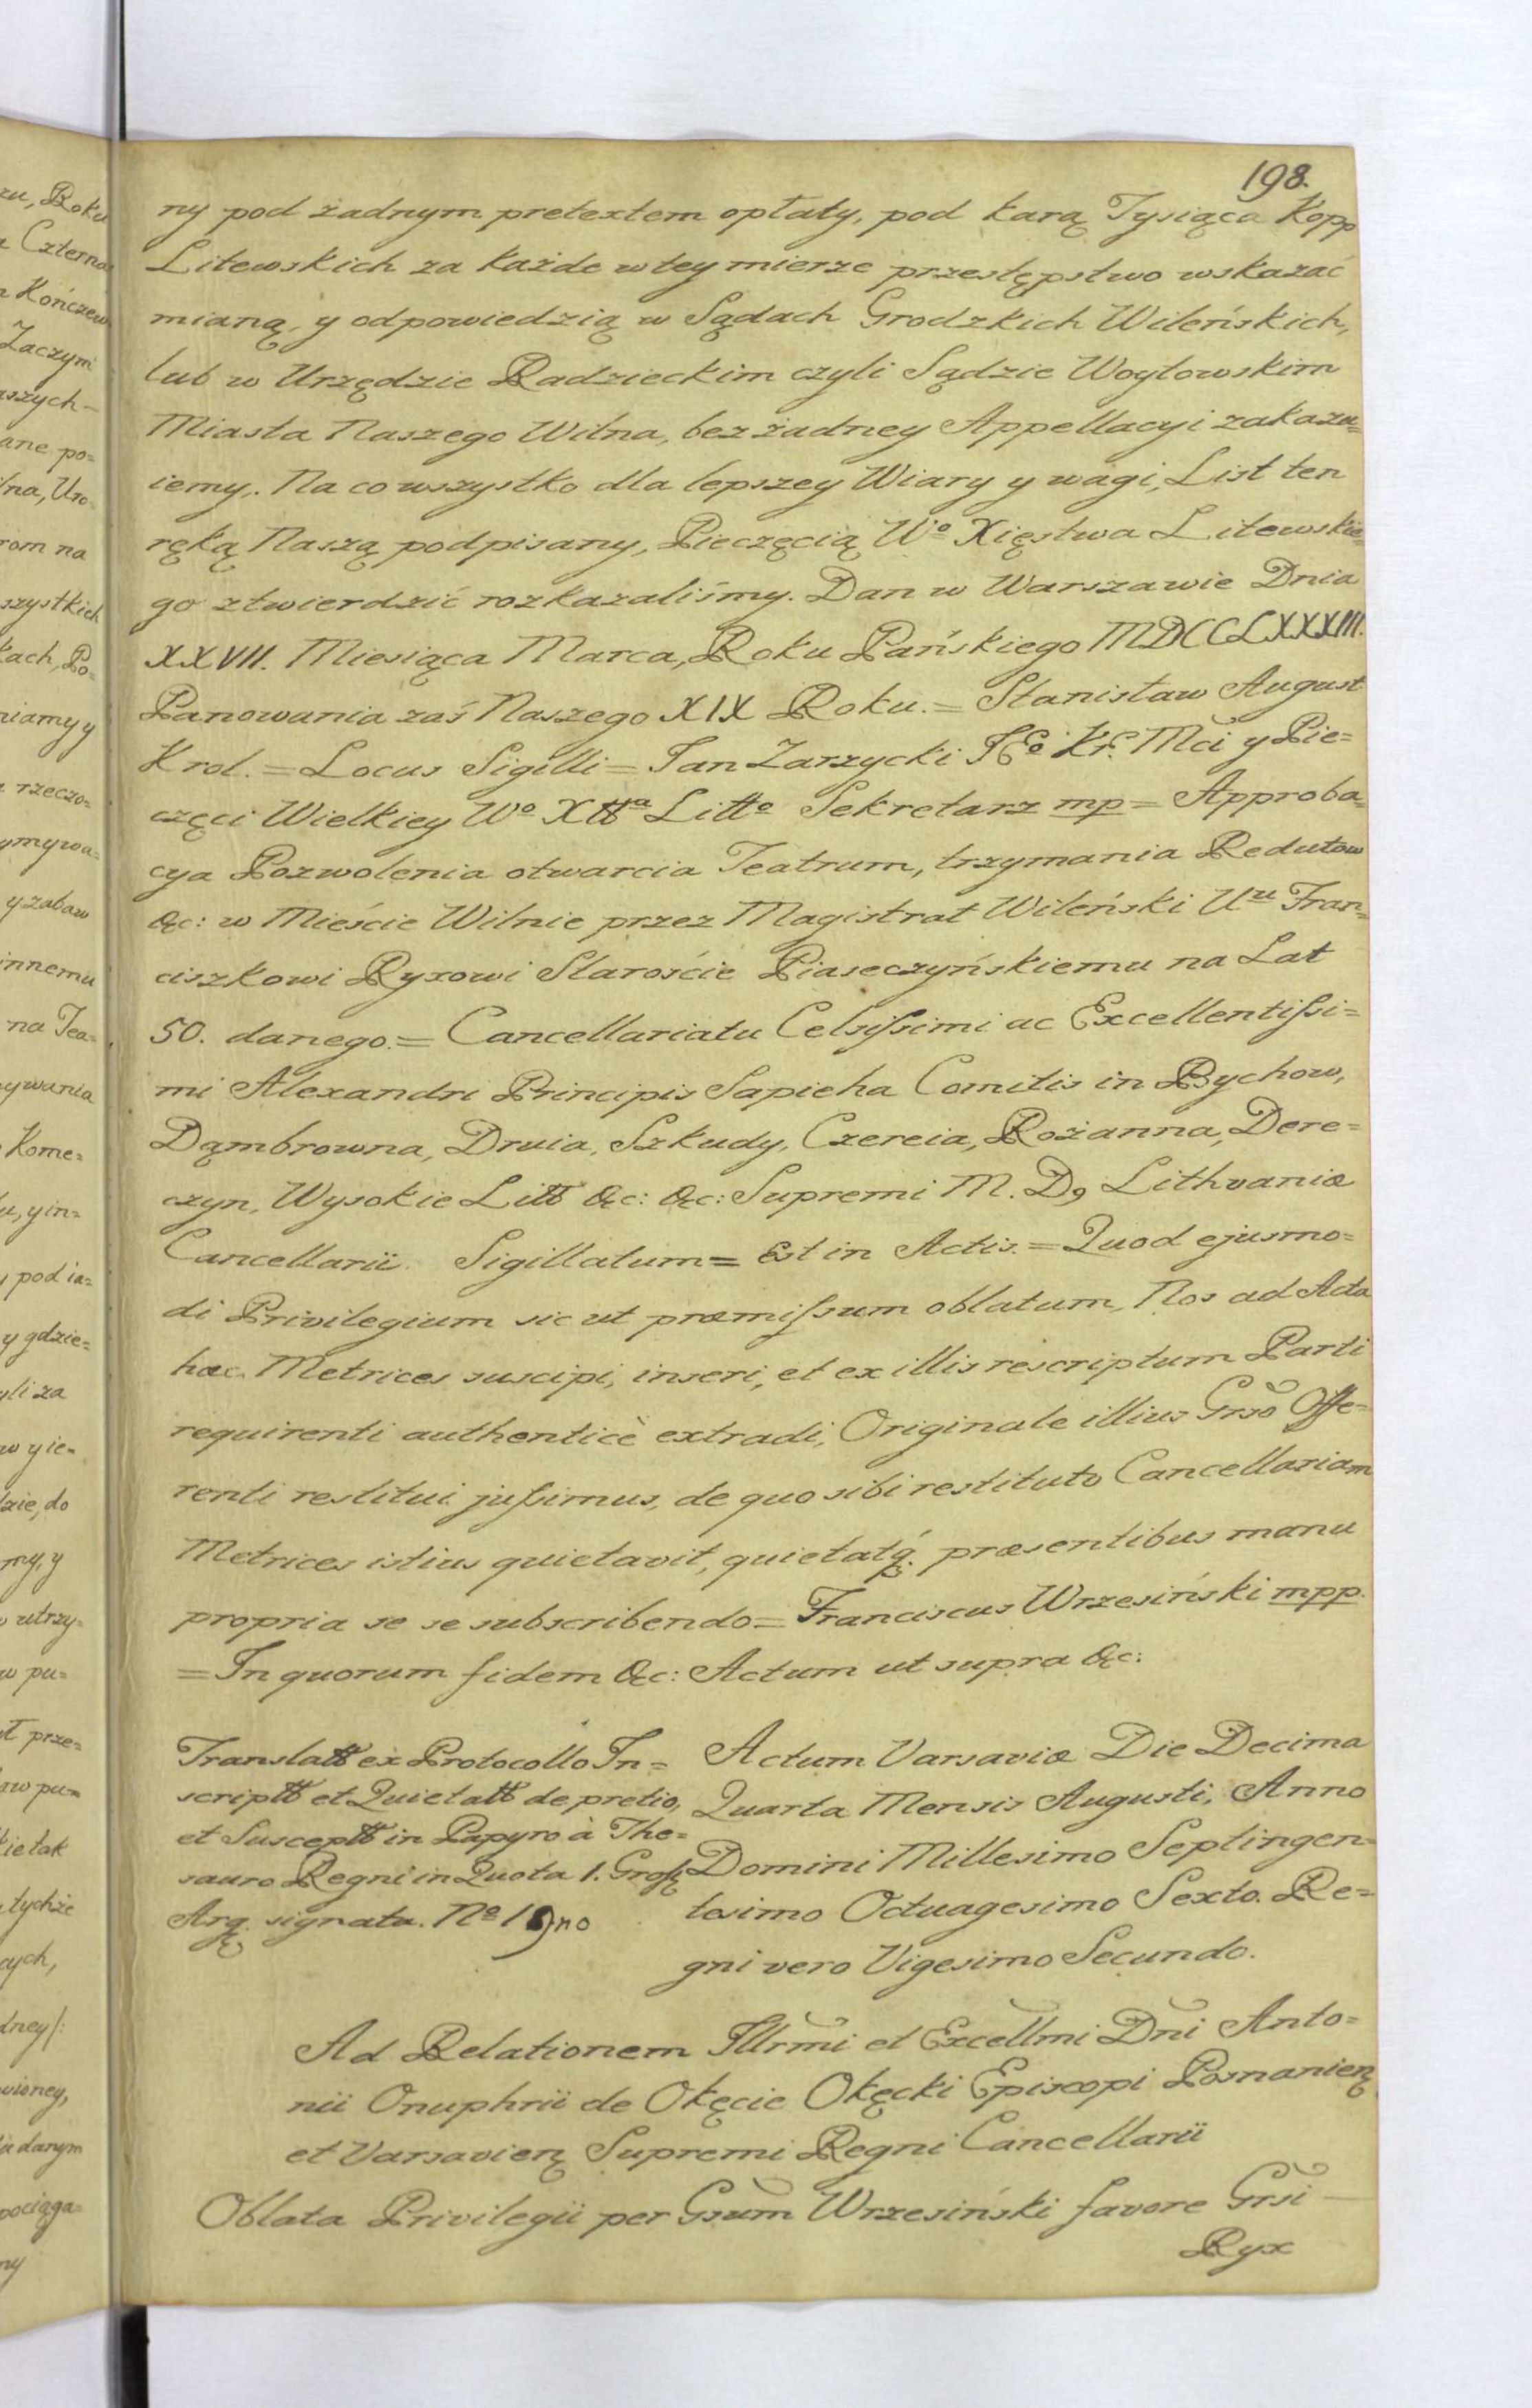 198.
ny pod żadnym pretextem opłaty, pod karą Tysiąca Kopp
Litewskich za każde w tey mierze przestępstwo wskazać
mianą, y odpowiedzią w Sądach Grodzkich Wileńskich,
lub w Urzędzie Radzieckim czyli Sądzie Woytowskim
Miasta Naszego Wilna, bez żadney Appellacyi zakazu=
iemy. Na co wszystko dla lepszey Wiary y wagi, List ten
ręką Naszą podpisany, Pieczęcią Wº Xięstwa Litewskie=
go ztwierdzić rozkazaliśmy. Dan w Warszawie Dnia
XXVII. Miesiąca Marca, Roku Pańskiego MDCCLXXXIII.
Panowania zaś Naszego XIX Roku. = Stanisław August
Krol. = Locus Sigilli = Jan Zarzycki Mci y Pie=
częci Wielkiey Wº Xttª Littº Sekretarz mp = Approba=
cya Pozwolenia otwarcia Teatrum, trzymania Redutow
&c: w Mieście Wilnie przez Magistrat Wileński Uᵘ Fran=
ciszkowi Ryxowi Staroście Piaseczyńskiemu na Lat
50. danego. = Cancellariatu Celsissimi ac Excellentissi=
mi Alexandri Principis Sapieha Comitis in Bychow,
Dąmbrowna, Druia, Szkudy, Czereia, Rożanna, Dere=
czyn, Wysokie Litt &c: &c: Supremi M. D. Lithvaniæ
Cancellarii. Sigillatum = Est in Actis. = Quod ejusmo=
di Privilegium sic ut præmissum oblatum, Nos ad Acta
hæc Metrices suscipi, inseri, et ex illis rescriptum Parti
requirenti authenticè extradi, Originale illius Grsõ Offe=
renti restitui jussimus, de quo sibi restituto Cancellariam
Metrices istius quietavit, quietatq́. præsentibus manu
propria se se subscribendo = Franciscus Wrzesiński mpp.
= In quorum fidem &c: Actum ut supra &c:
Translatt ex Protocollo In=
scriptt et Quietatt de pretio,
et Susceptt in Papyro à The=
sauro Regni in Quota 1. Grosſ
Arg. signata. Nº 1
Actum Varsaviæ Die Decima
Quarta Mensis Augusti, Anno
Domini Millesimo Septingen=
tesimo Octuagesimo Sexto. Re=
gni vero Vigesimo Secundo.
Ad Relationem Illrmi et Excellmi Dñi Anto=
nii Onuphrii de Okęcie Okęcki Episcopi Posnanien
et Varsavien Supremi Regni Cancellarii
Oblata Privilegii per Gsum Wrzesiński favore Grsi
Ryx